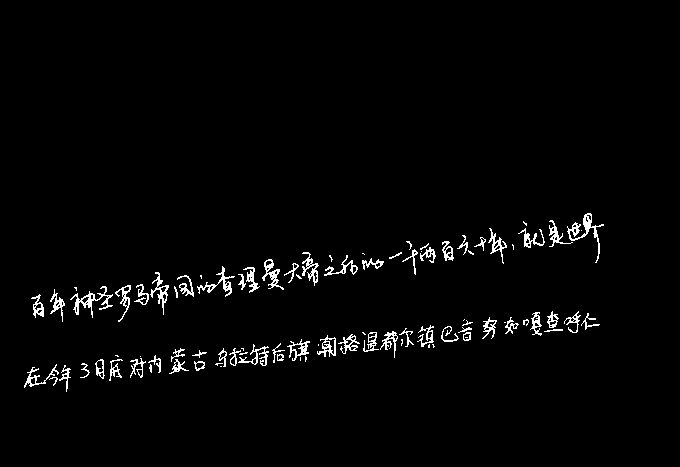 百年神圣罗马帝国的查理曼大帝之后的一千两百六十年，就是世界
在今年3月底对内蒙古乌拉特后旗潮格温都尔镇巴音努如嘎查呼仁